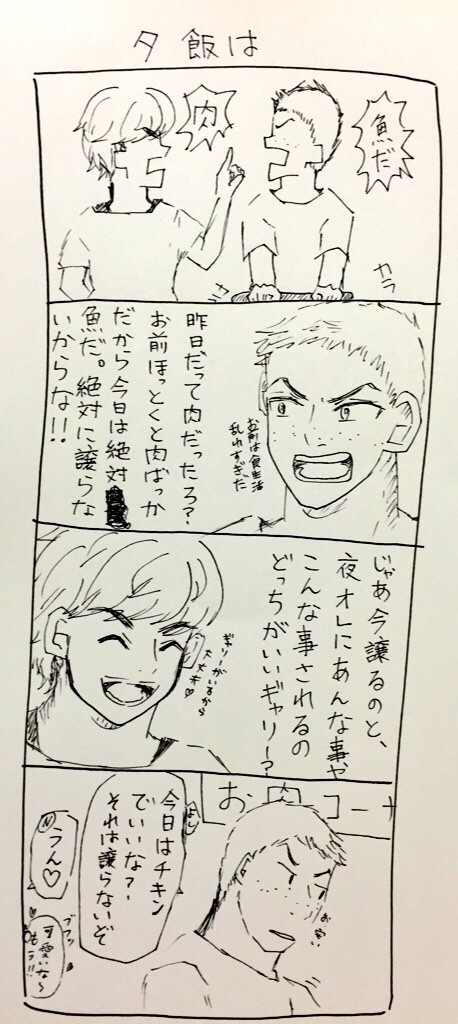 夕飯は
魚だ
肉
カラ
カラ
昨日だって肉だったろ？
お前ほっとくと肉ばっか
だから今日は絶対
魚だ。絶対に譲らな
いからな!!
お前は食生活
乱れすぎだ
じゃあ今譲るのと、
夜オレにあんな事や
こんな事されるの
どっちがいいギャリー？
ギャリーがいるから
大丈夫♡
お肉コーナ
よし
今日はチキン
でいいな？
それは譲らないぞ
うん♡
ププッ
可愛いな～
もう!!